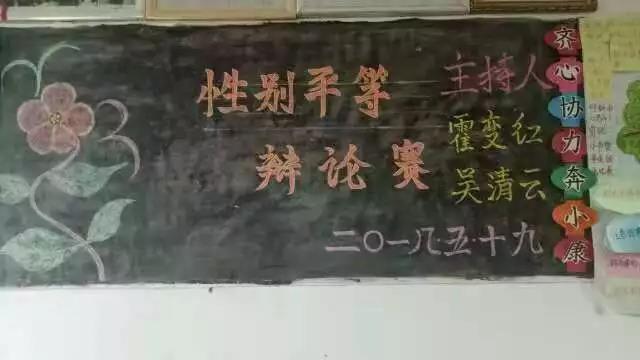 性别平等
辩论赛
主持人
霍变红
吴清云
二〇一八.五.十九
齐心协力奔小康